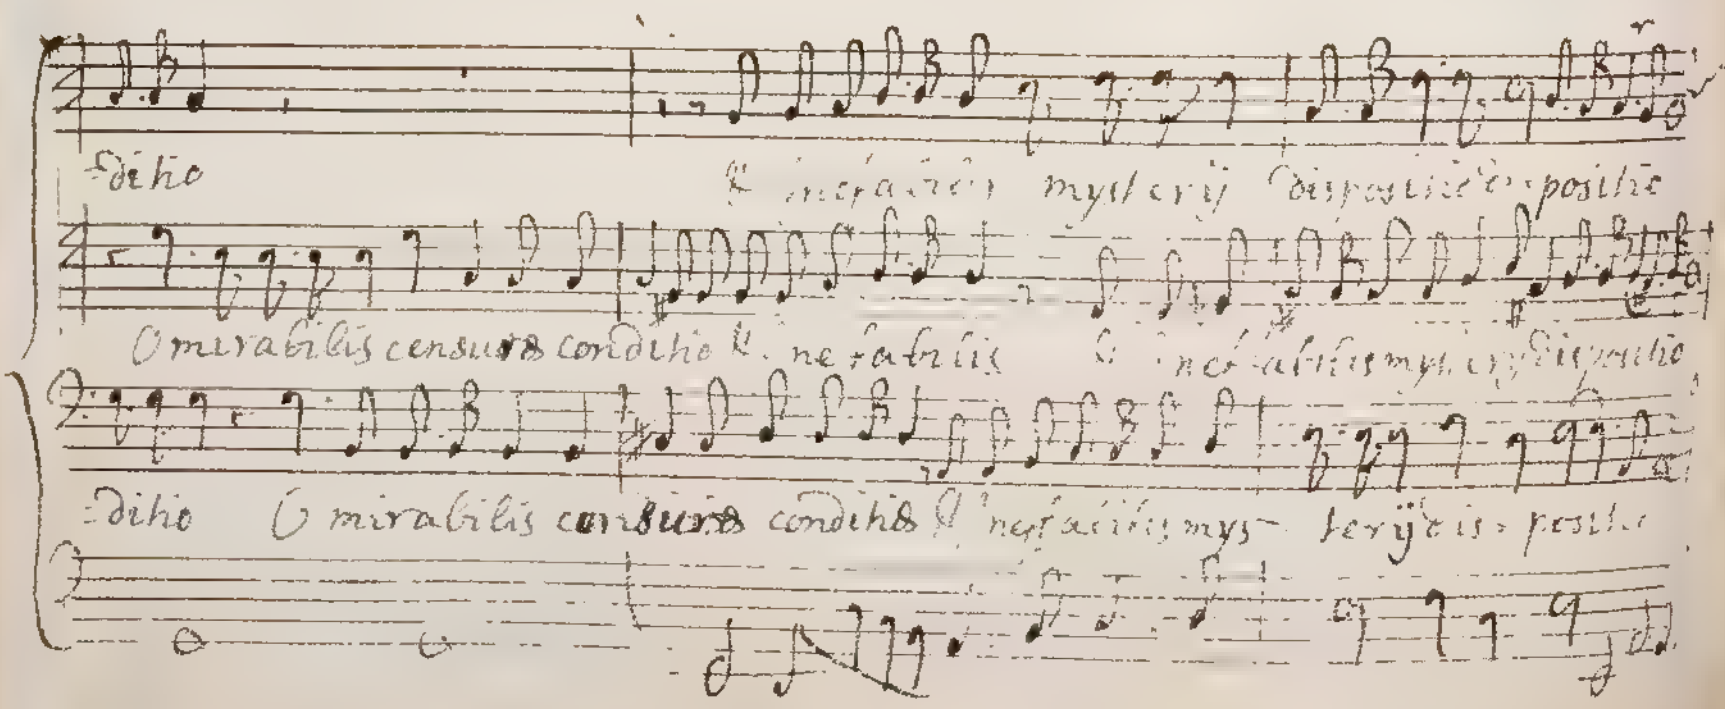 =ditio & inefabilis mysterij dispositio dispositio
O mirabilis censura conditio & inefabilis O inefabilis mysterij dispositio
=ditio O mirabilis censura conditio & inefabilis mys- terij dis- positio